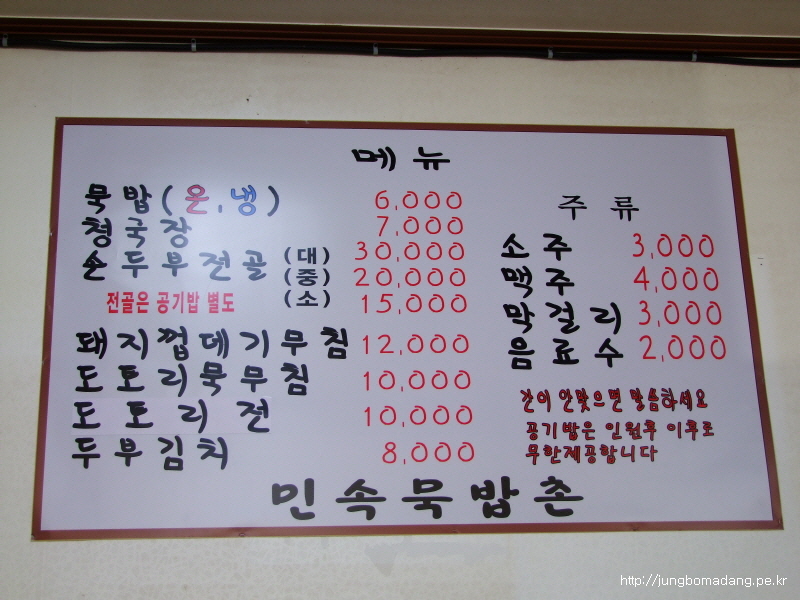 메뉴
묵밥(온,냉) 6,000
청국장 7,000
손두부전골 (대) 30,000
(중) 20,000
전골은 공기밥 별도 (소) 15,000
돼지껍데기무침 12,000
도토리묵무침 10,000
도토리전 10,000
두부김치 8,000
주류
소주 3,000
맥주 4,000
막걸리 3,000
음료수 2,000
간이 안맞으면 말씀하세요
공기밥은 인원추 이후로
무한제공합니다
민속묵밥촌
http://jungbomadang.pe.kr